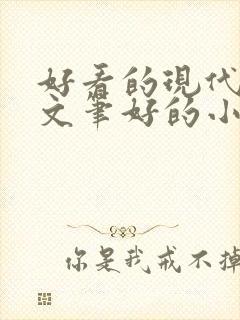 好看的现代
文笔好的小
你是我戒不掉